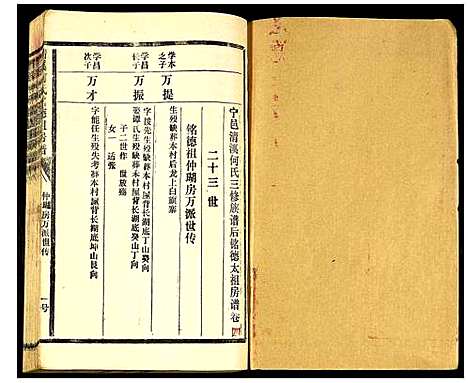 宁邑清溪何氏三修族谱后铭德太祖房谱卷四
二十三世
铭德祖仲瑚房万派世传
学本之子
万提
生殁缺葬本村后龙上白旗寨
学昌长子
万振
字援先生殁缺葬本村屋背长湖底丁山癸向
娶谭氏生殁缺葬本村屋背长湖底癸山丁向
子二世作 世放殇
女一 适张
学昌次子
万才
字能任生殁失考葬本村屋背长湖底坤山艮向
仲瑚房万派世传
一号